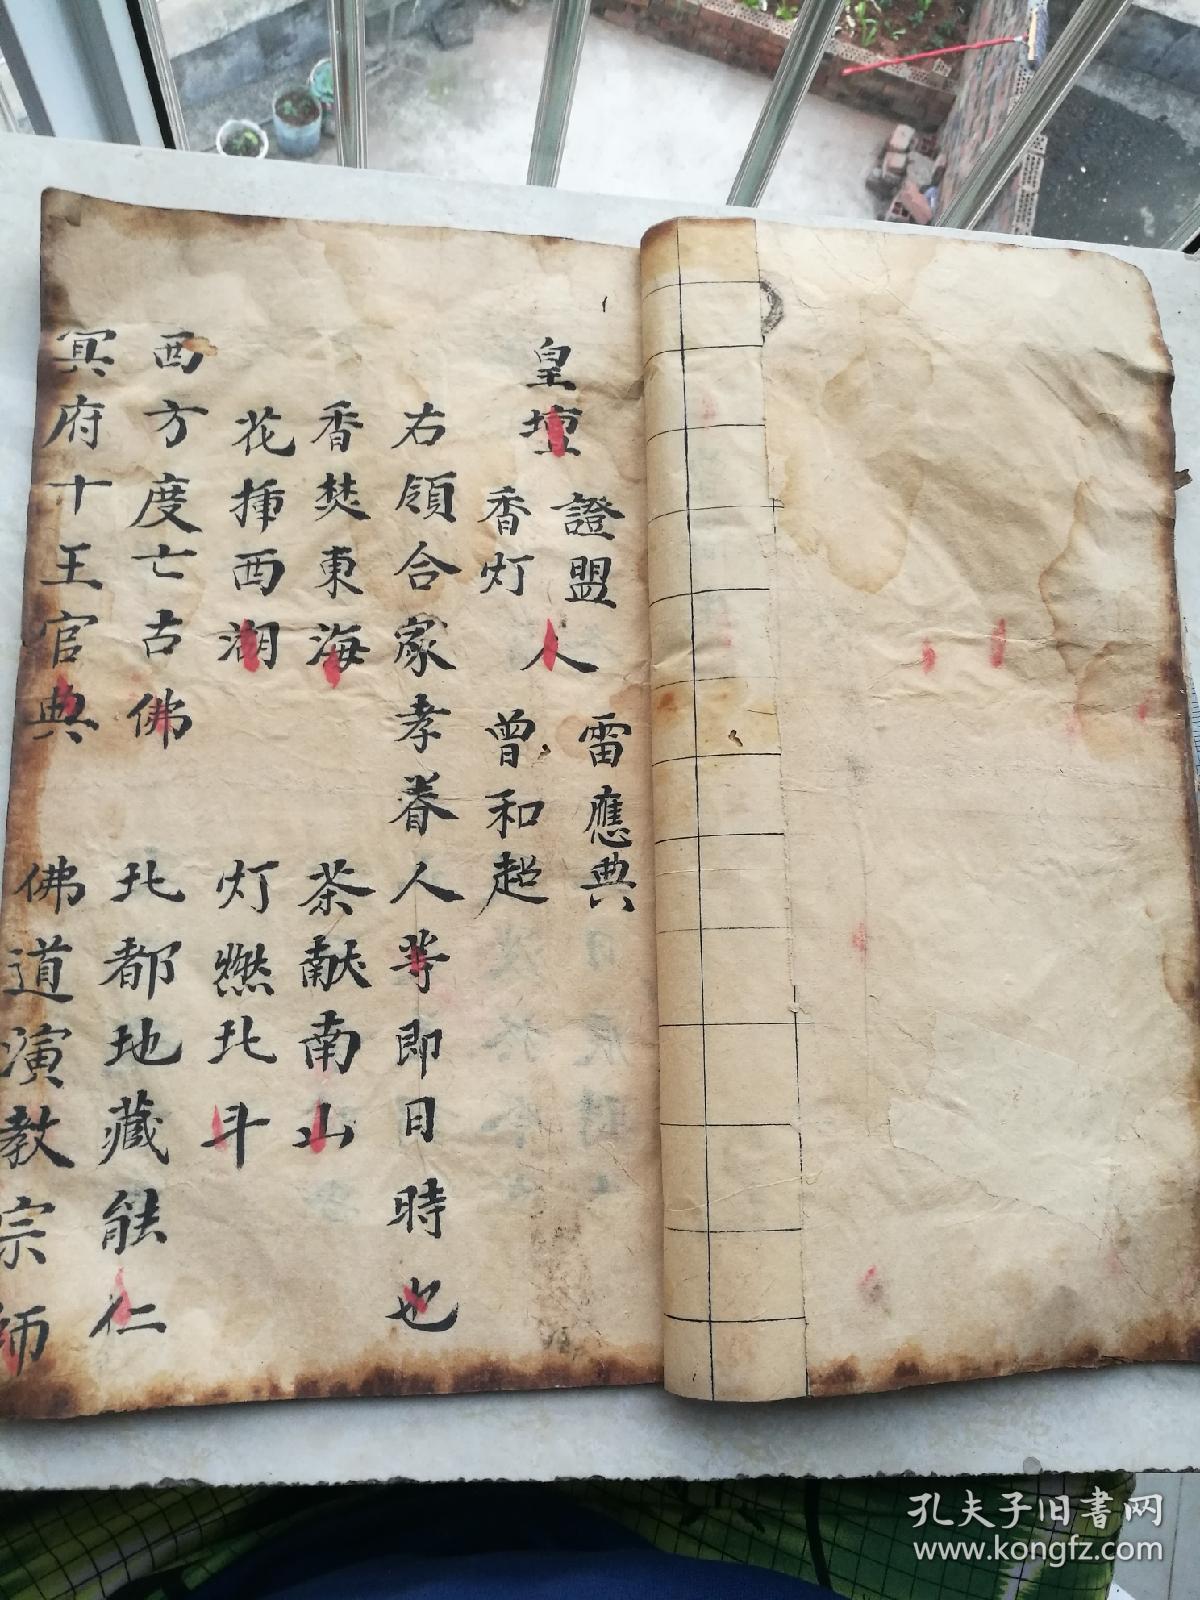 皇壇
證盟 雷應典
人
香灯 曾和超
右領合家孝眷人等即日時也
香焚東海 茶献南山
花挿西湖 灯燃北斗
西方度亡古佛 北都地藏能仁
冥府十王官典 佛道演教宗师
孔夫子旧书网
www.kongfz.com